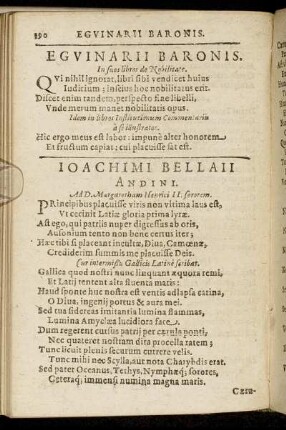 390 EGVINARII BARONIS.
EGVINARII BARONIS.
In suos libros de Nobilitate.
QVi nihil ignorat, libri sibi vendicet huius
Iudicium; inscius hoc nobilitatus erit.
Discet enim tandem, perspecto fine libelli,
Vnde merum manet nobilitatis opus.
Idem in libros Institutionum Commentariis
à se illustratos.
Hic ergo meus est labor: impunè alter honorem
Et fructum capiat; cui placuisse sat est.
IOACHIMI BELLAII
ANDINI.
Ad D. Margaretham Henrici II. sororem.
PRincipibus placuisse viris non vltima laus est,
Vt cecinit Latiæ gloria prima lyræ.
Ast ego, qui patriis nuper digressus ab oris,
Ausonium tento non bene cautus iter;
Hæc tibi si placeant incultæ, Diua, Camœnæ,
Crediderim summis me placuisse Deis.
Cur intermissis Gallicis Latinè scribat.
Gallica quod nostri nunc linquant æquora remi,
Et Latij tentent alta fluenta maris:
Haud sponte huc nostra est ventis adlapsa carina,
O Diua, ingenij portus & aura mei.
Sed tua sidereas imitantia lumina flammas,
Lumina Amyclæa lucidiora face,
Dum regerent cursus patrij per cærula ponti,
Nec quateret nostram dita procella ratem;
Tunc licuit plenis securum currere velis.
Tunc mihi nec Scylla, aut nota Charybdis erat.
Sed pater Oceanus, Tethys, Nymphæq; sorores,
Ceteraq; immensi numina magna maris.